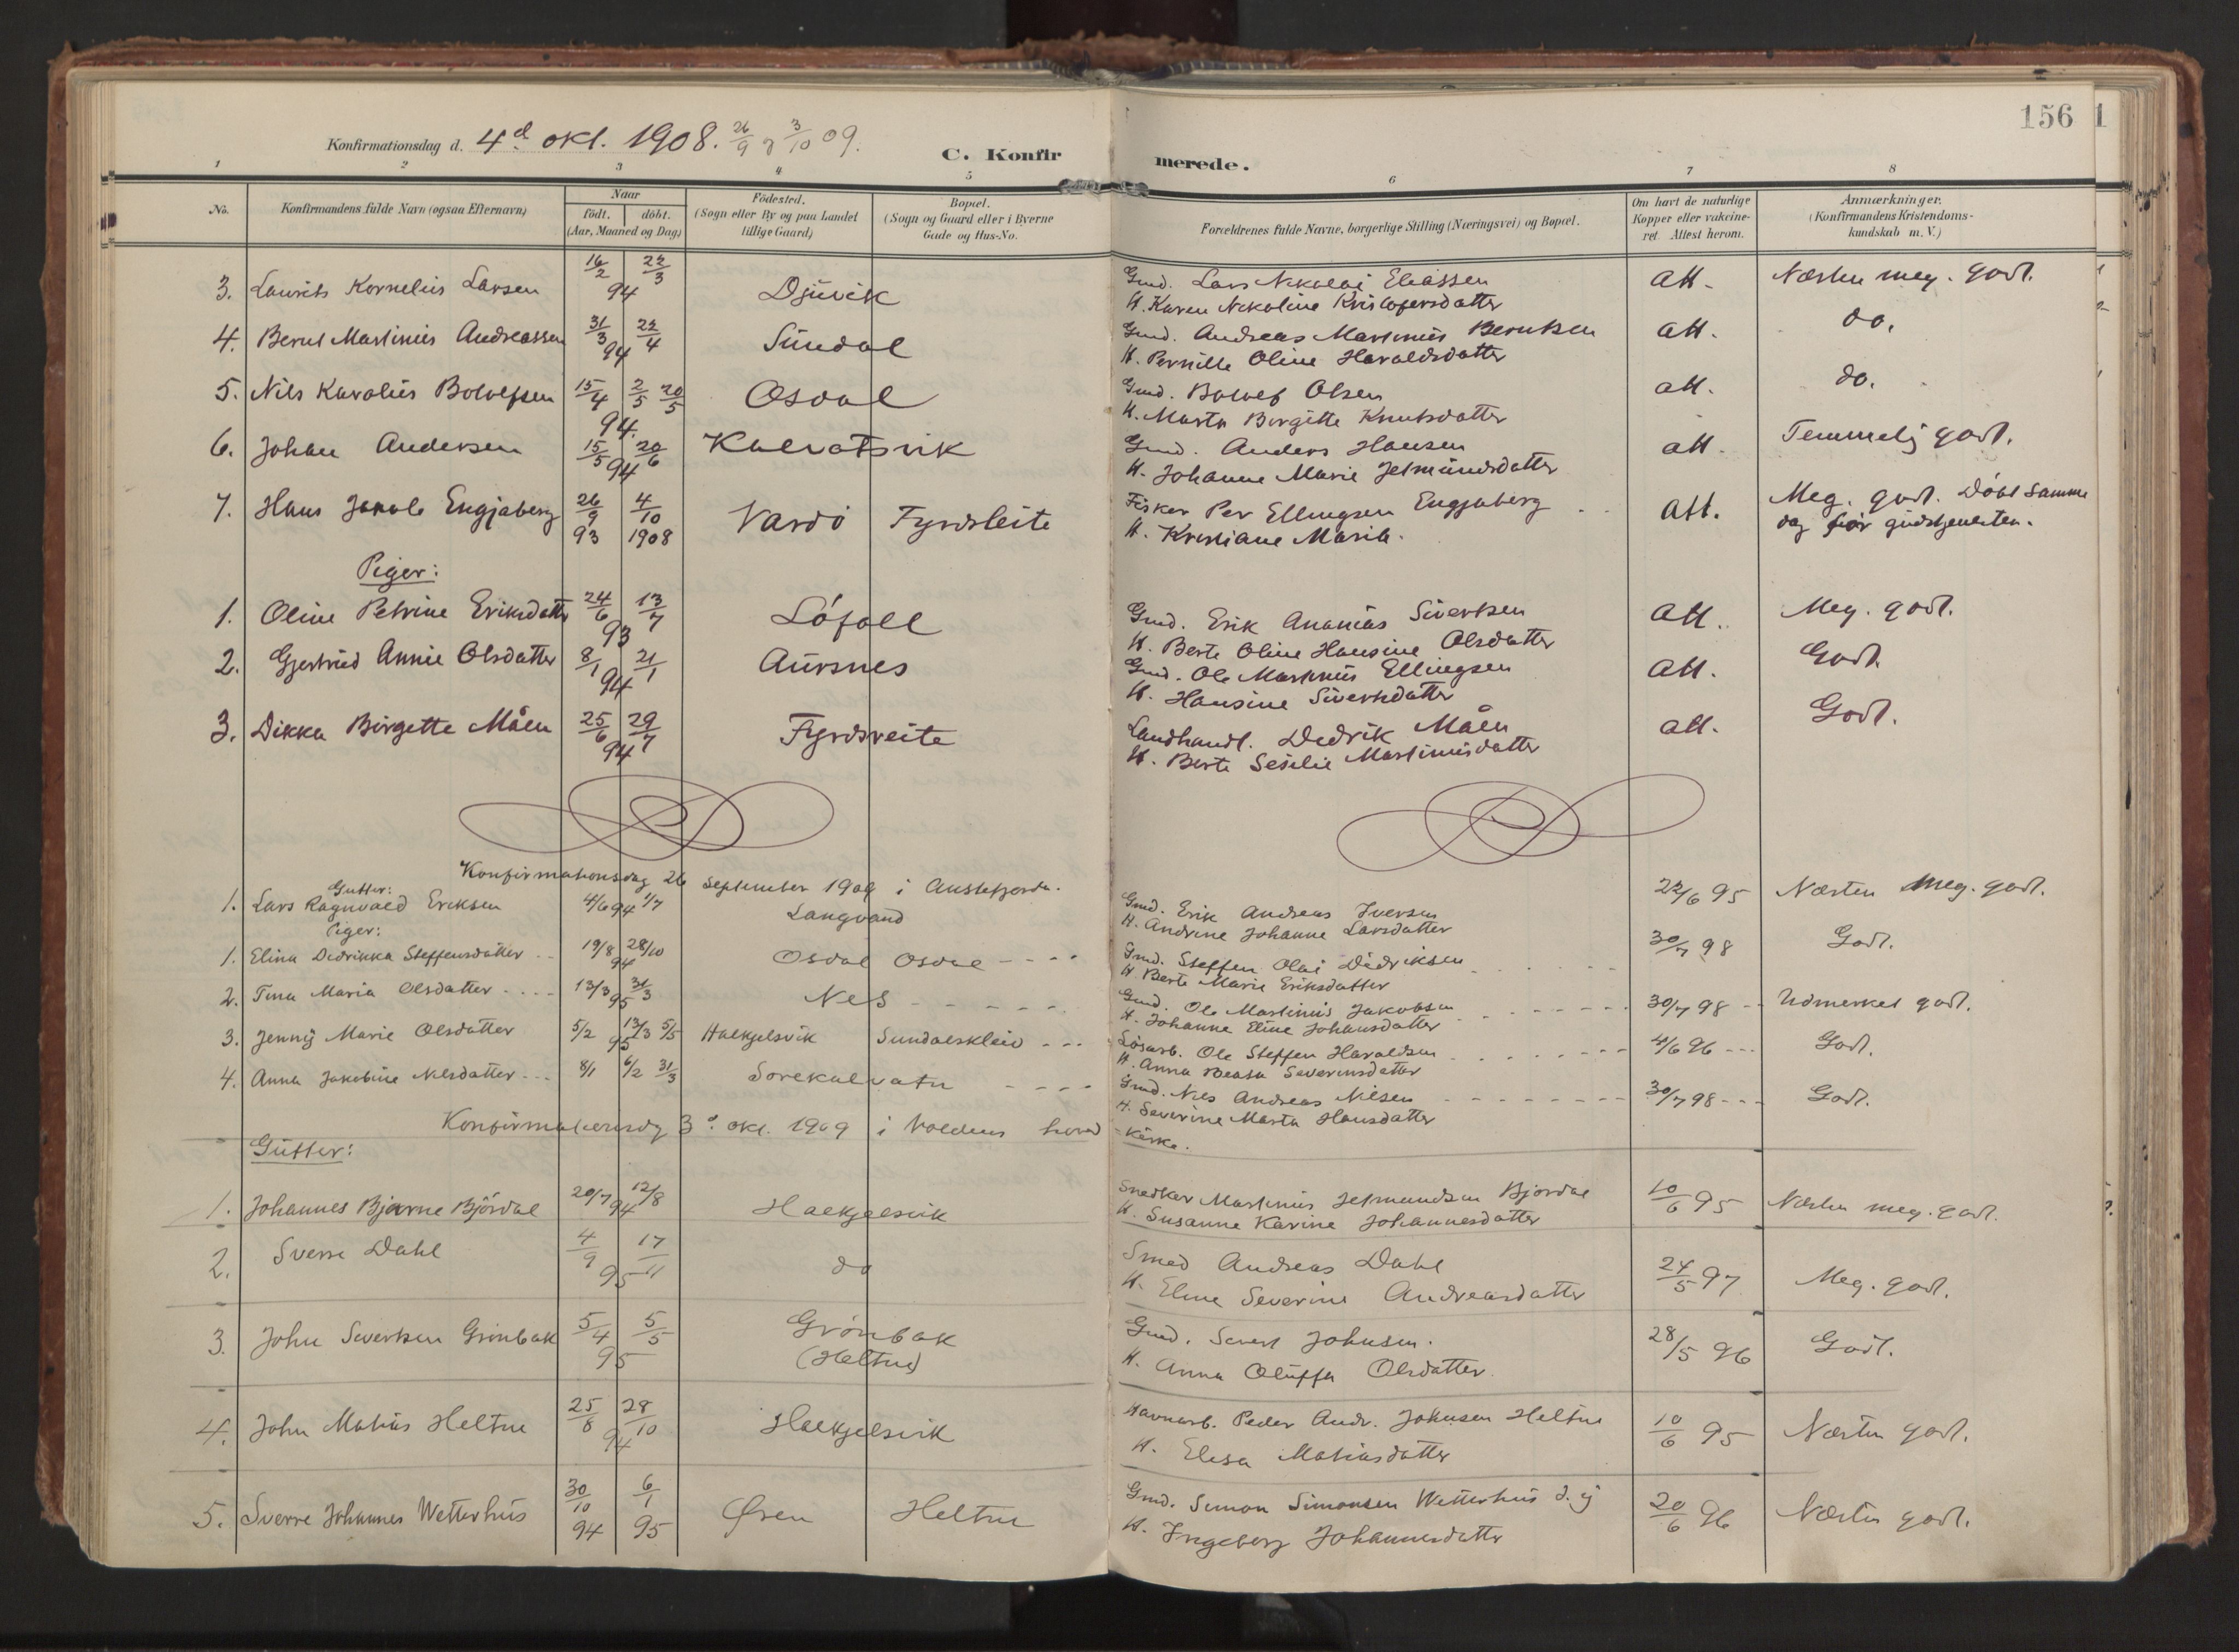 156 1
Konfirmationsdag d. 4d okt. 1908. 26/9 og 3/10 09.
C. Konfirmerede.
1 2 3 4 5 6 7 8
No. Konfirmandens fulde Navn (ogsaa Efternavn) Naar födt. döbt. (Aar, Maaned og Dag) Födested. (Sogn eller By og paa Landet tillige Gaard) Bopæl. (Sogn og Gaard eller i Byerne Gade og Hus-No. Forældrenes fulde Navne, borgerlige Stilling (Næringsvei) og Bopæl. Om havt de naturlige Kopper eller vakcineret. Attest herom. Anmærkninger. (Konfirmandens Kristendomskundskab m. V.)
3. Laurits Kornelius Larsen 16/2 22/3 94 Djuvik Gmd. Lars Nikolai Eliassen att. Næsten meg. godt.
H. Karen Nikoline Kristofersdatter
4. Bernt Martinius Andreassen 31/3 22/4 94 Sundal Gmd. Andreas Martinius Berntsen att. do.
H. Pernille Oline Haraldsdatter
5. Nils Karolius Bolvefsen 15/4 2/5 20/5 94. Osdal Gmd. Bolvef Olsen att. do.
H. Marta Birgitte Knutsdatter
6. Johan Andersen 15/5 20/6 94 Kalvatsvik Gmd. Anders Hansen att. Temmelig godt.
H. Johanne Marie Jetmundsdatter
7. Hans Jakob Engjaberg 26/9 93 4/10 1908 Vardö Fyrdsleite Fisker Per Ellingsen Engjaberg att. Meg. godt. Döbt samme
H. Kristiane Maria. dag för gudstjenesten.
Piger:
1. Oline Petrine Eriksdatter 24/6 13/7 93 Löfoll Gmd. Erik Ananias Sivertsen att. Meg. godt.
H. Berte Oline Hansine Olsdatter
2. Gjertrud Annie Olsdatter 8/1 21/1 94 Aursnes Gmd. Ole Martinius Ellingsen att. Godt.
H. Hansine Sivertsdatter
3. Dikka Birgette Måen 25/6 29/7 94 Fyrdsreite Landhandl. Didrik Måen att. Godt.
H. Berte Sesilie Martinusdatter
Konfirmationsdag 26 September 1909 i Austefjorden.
Gutter:
1. Lars Ragnvald Eriksen 4/6 94 1/7 Langvand Gmd. Erik Andreas Iversen 22/6 95 Næsten meg. godt.
H. Andrine Johanne Larsdatter
Piger:
1. Elina Didrikka Steffensdatter 19/8 28/10 94 Osdal Osdal Gmd. Steffen Olai Didriksen 30/7 98 Godt.
H. Berte Marie Eriksdatter
2. Tina Maria Olsdatter 13/3 31/3 95 Nes Gmd. Ole Martinius Jakobsen 30/7 98 Udmerket godt.
H. Johanne Eline Johansdatter
3. Jenny Marie Olsdatter 5/2 13/3 5/5 95 Halkjelsvik Sundalskleiv Lösarb. Ole Steffen Haraldsen 4/6 96 Godt.
H. Anna Beata Severinsdatter
4. Anna Jakobine Nilsdatter 8/1 6/2 31/3 Sörekalvatn Gmd. Nils Andreas Nilsen 30/7 98 Godt.
H. Severine Marta Hansdatter
Konfirmationsdg 3d okt. 1909 i Voldens hoved-kirke.
Gutter:
1. Johannes Bjarne Björdal 20/7 12/8 94 Halkjelsvik Snedker Martinius Jetmundsen Björdal 10/6 95 Næsten meg. godt.
H. Susanne Karine Johannesdatter
2. Sverre Dahl 4/9 17/11 95 do Smed Andreas Dahl 24/5 97 Meg. godt.
H. Eline Severine Andreasdatter
3. John Sivertsen Grönbak 5/4 5/5 95 Grönbak (Heltne) Gmd. Sivert Johnsen. 28/5 96 Godt.
H. Anna Oluffa Olsdatter
4. John Matias Heltne 25/8 28/10 94 Halkjelsvik Havnarb. Peder Andr. Johnsen Heltne 10/6 95 Næsten godt.
H. Elisa Matiasdatter
5. Sverre Johannes Wetterhus 30/10 94 6/1 95 Øren Heltne Gmd. Simon Simonsen Wetterhus 20/6 96 Næsten godt.
H. Ingeborg Johannesdatter